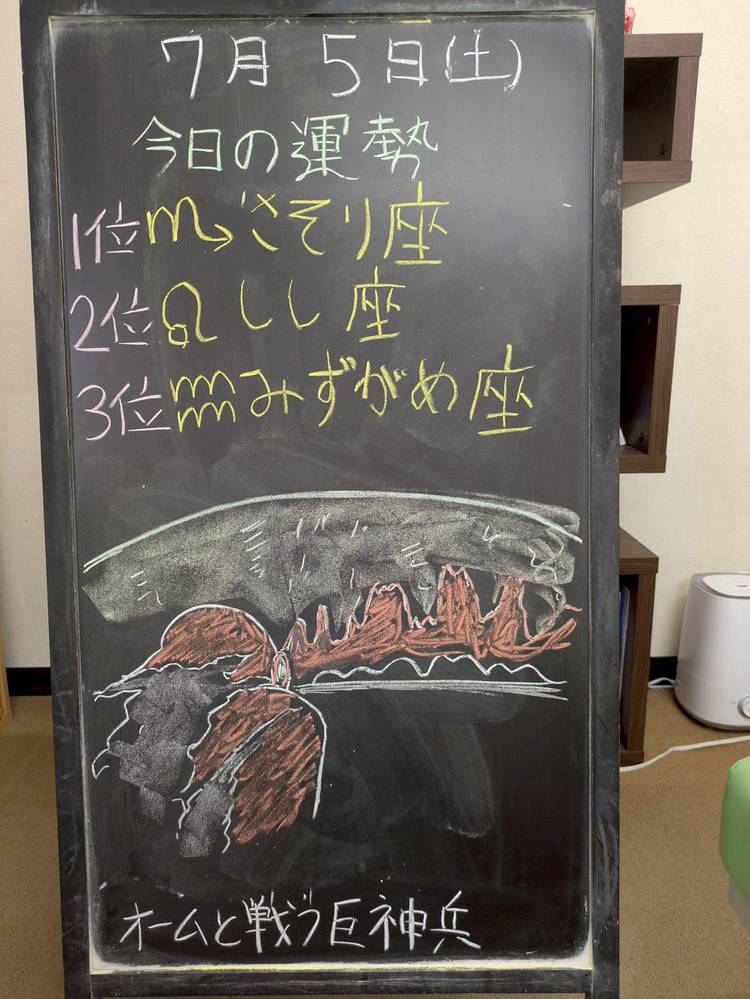 7月 5日(土)
今日の運勢
1位♏さそり座
2位♌しし座
3位♒みずがめ座
オームと戦う巨神兵